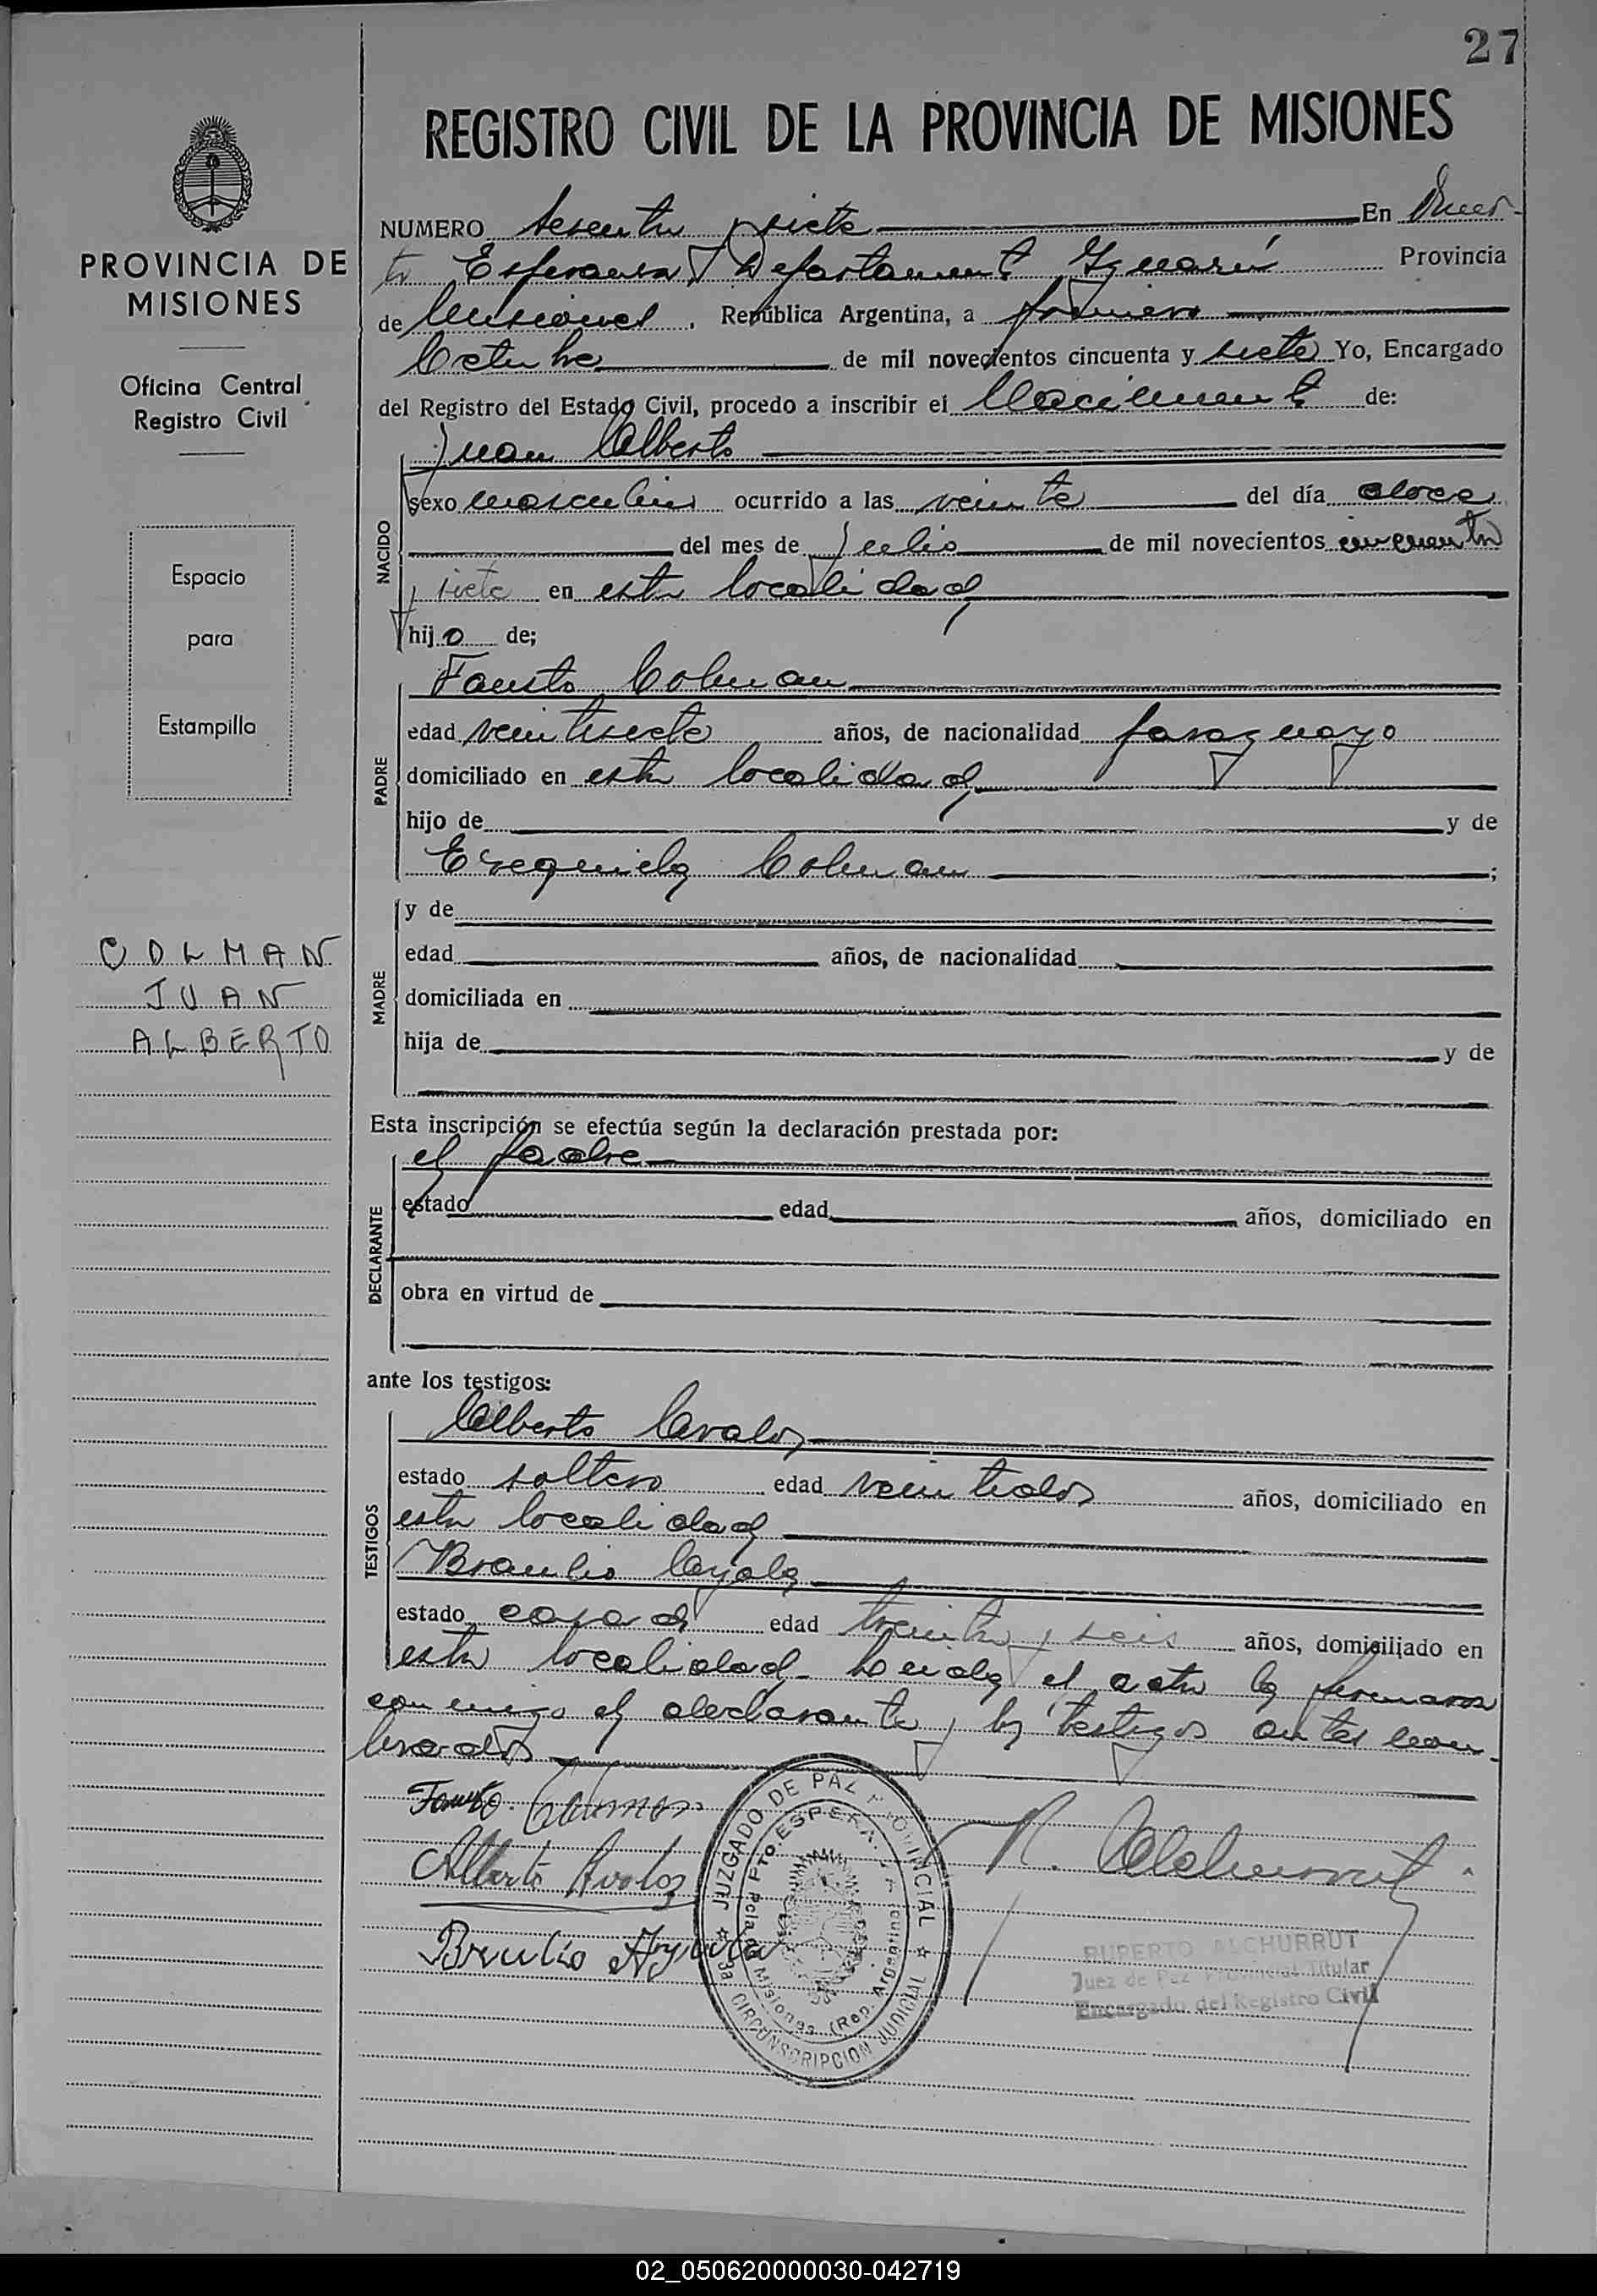 27
REGISTRO CIVIL DE LA PROVINCIA DE MISIONES
PROVINCIA DE
MISIONES
Oficina Central
Registro Civil
Espacio
para
Estampilla
COLMAN
JUAN
ALBERTO
NUMERO sesenta y siete En Puer-
to Esperanza, Departamento Iguazú Provincia
de Misiones, República Argentina, a primero
Octubre de mil novecientos cincuenta y siete Yo, Encargado
del Registro del Estado Civil, procedo a inscribir el Nacimiento de:
NACIDO
Juan Alberto
sexo masculino ocurrido a las veinte del día doce
del mes de Julio de mil novecientos cincuenta
y siete en esta localidad
hijo de;
PADRE
Fausto Colman
edad veintisiete años, de nacionalidad paraguayo
domiciliado en esta localidad
hijo de y de
Ezequiela Colman ;
MADRE
y de
edad años, de nacionalidad
domiciliada en
hija de y de
Esta inscripción se efectúa según la declaración prestada por:
DECLARANTE
el padre
estado edad años, domiciliado en
obra en virtud de
ante los testigos:
TESTIGOS
Alberto Avalos
estado soltero edad veintidos años, domiciliado en
esta localidad
Braulio Ayala
estado casado edad treinta y seis años, domiciliado en
esta localidad. Leida el acta la firmaron
conmigo el declarante y los testigos antes nom-
brados
Fausto Colman
Alberto Avalos
Braulio Ayala
R. Alchurrut
JUZGADO DE PAZ PROVINCIAL
3a CIRCUNSCRIPCION JUDICIAL
PTO. ESPERANZA
Pcia. de Misiones (Rep. Argentina)
RUPERTO ALCHURRUT
Juez de Paz Provincial Titular
Encargado del Registro Civil
02_050620000030-042719